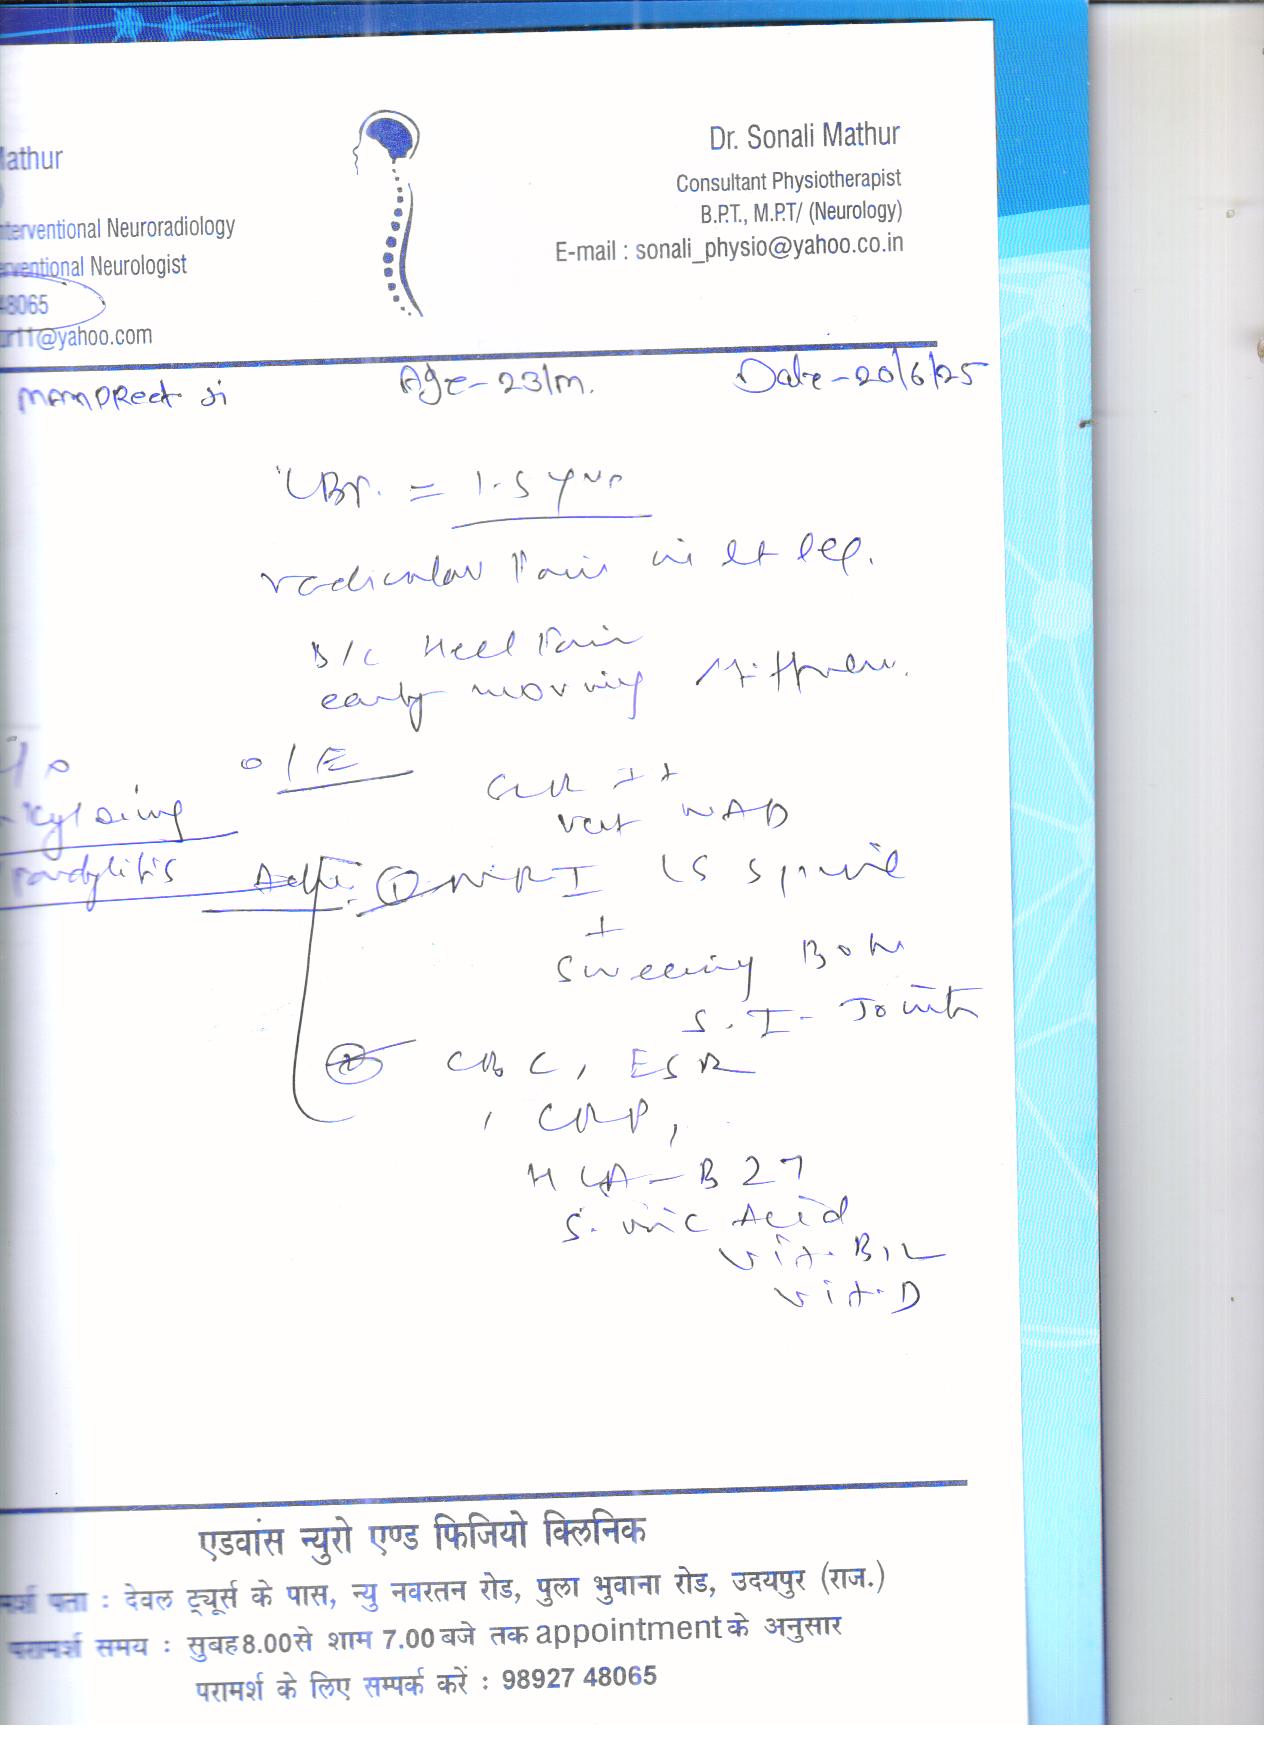 Mathur
Interventional Neuroradiology
Interventional Neurologist
48065
@yahoo.com
Dr. Sonali Mathur
Consultant Physiotherapist
B.P.T., M.P.T/ (Neurology)
E-mail : sonali_physio@yahoo.co.in
manpreet Ji Age-23/m. Date-20/6/25
LBP. = 1.5 yrs
radicular Pain in lt leg.
B/L Heel Pain
early morning stiffness.
O/E
SLR ++
rest NAD
kylosing
pondylitis
Adv: ① MRI LS spine
+
Screening Both
S.I-Joints
② CBC, ESR
, CRP,
HLA-B27
S. uric Acid
Vit. B12
Vit. D
एडवांस न्युरो एण्ड फिजियो क्लिनिक
परामर्श पता : देवल ट्यूर्स के पास, न्यु नवरतन रोड, पुला भुवाना रोड, उदयपुर (राज.)
परामर्श समय : सुबह 8.00 से शाम 7.00 बजे तक appointment के अनुसार
परामर्श के लिए सम्पर्क करें : 98927 48065